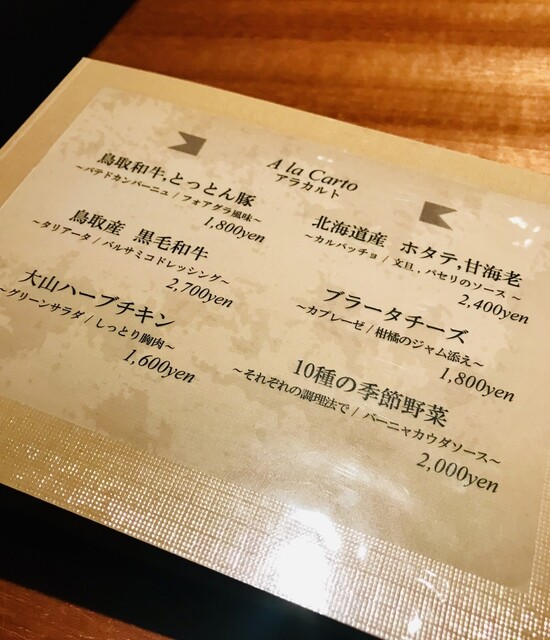 A la Carto
アラカルト
鳥取和牛,とっとん豚
~パテドカンパーニュ / フォアグラ風味~
1,800yen
鳥取産 黒毛和牛
~タリアータ / バルサミコドレッシング~
2,700yen
大山ハーブチキン
~グリーンサラダ / しっとり胸肉~
1,600yen
北海道産 ホタテ,甘海老
~カルパッチョ / 文旦,パセリのソース ~
2,400yen
ブラータチーズ
~カプレーゼ / 柑橘のジャム添え~
1,800yen
10種の季節野菜
~それぞれの調理法で / バーニャカウダソース~
2,000yen